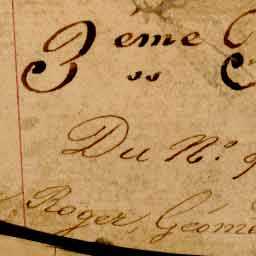 3 éme
Du N.º 9
Roger, Géomé